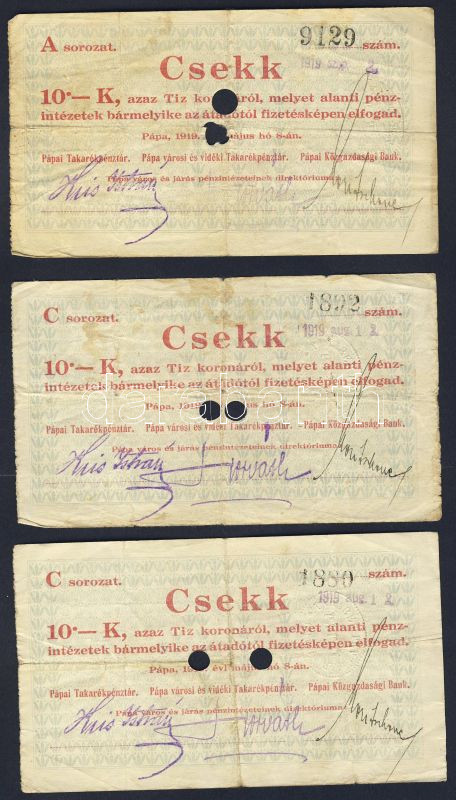 A sorozat. 9129 szám.
1919 2.
Csekk
10·— K, azaz Tiz koronáról, melyet alanti pénz-
intézetek bármelyike az átadótól fizetésképen elfogad.
Pápa, 1919. május hó 8-án.
Pápai Takarékpénztár. Pápa városi és vidéki Takarékpénztár. Pápai Közgazdasági Bank.
Pápa város és járás pénzintézeteinek direktóriuma
Kis István Horváth
C sorozat. 1892 szám.
1919 aug. 1 2.
Csekk
10·— K, azaz Tiz koronáról, melyet alanti pénz-
intézetek bármelyike az átadótól fizetésképen elfogad.
Pápa, május hó 8-án.
Pápai Takarékpénztár. Pápa városi és vidéki Takarékpénztár. Pápai Közgazdasági Bank.
Pápa város és járás pénzintézeteinek direktóriuma
Kis István Horváth
C sorozat. 1880 szám.
1919 aug. 1 2.
Csekk
10·— K, azaz Tiz koronáról, melyet alanti pénz-
intézetek bármelyike az átadótól fizetésképen elfogad.
Pápa, évi május hó 8-án.
Pápai Takarékpénztár. Pápa városi és vidéki Takarékpénztár. Pápai Közgazdasági Bank.
Pápa város és járás pénzintézeteinek direktóriuma
Kis István Horváth